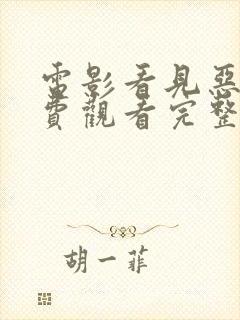 電影看見惡
費觀看完整
胡一菲